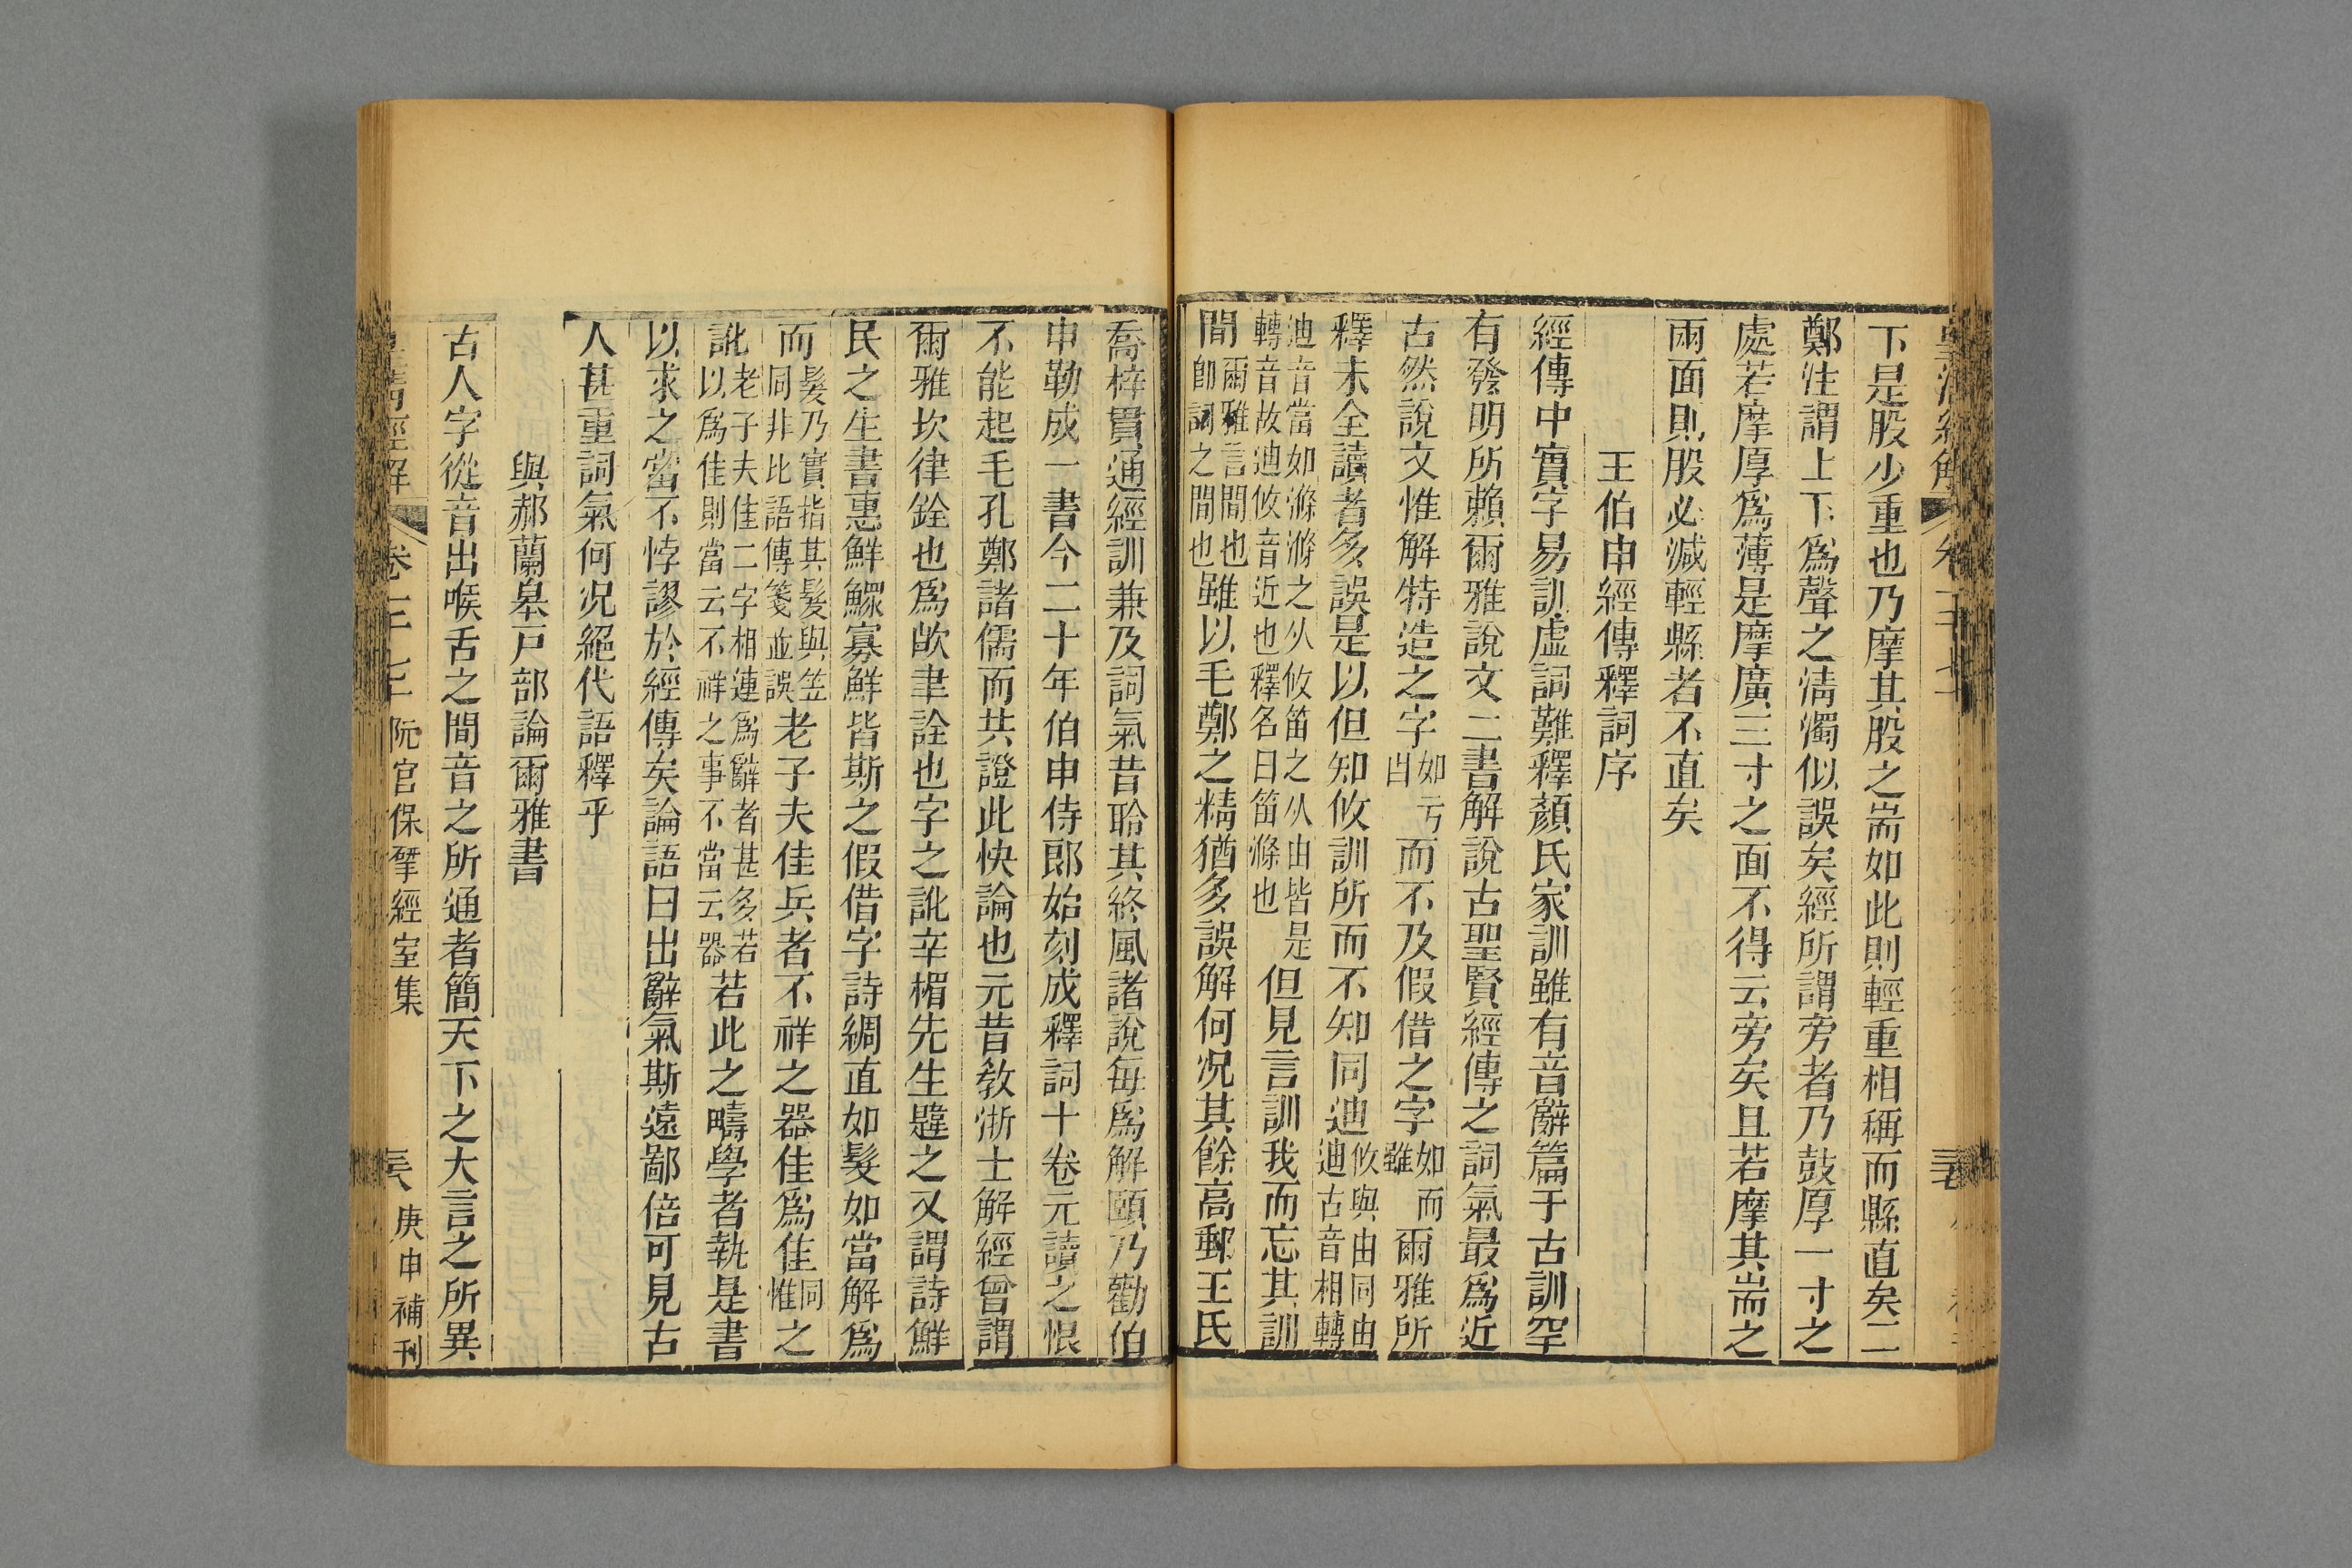 下是股少重也乃摩其股之耑如此則輕重相稱而縣直矣二
鄭注謂上下爲聲之淸濁似誤矣經所謂旁者乃鼓厚一寸之
處若摩厚爲薄是摩廣三寸之面不得云旁矣且若摩其耑之
兩面則股必減輕縣者不直矣
王伯申經傳釋詞序
經傳中實字易訓虛詞難釋顏氏家訓雖有音辭篇于古訓罕
有發明所賴爾雅說文二書解說古聖賢經傳之詞氣最爲近
古然說文惟解特造之字如亏𠙴而不及假借之字如而雖爾雅所
釋未全讀者多誤是以但知攸訓所而不知同迪攸與由同由迪古音相轉
迪音當如滌滌之从攸笛之从由皆是轉音故迪攸音近也釋名曰笛滌也但見言訓我而忘其訓
間爾雅言間也卽詞之間也雖以毛鄭之精猶多誤解何况其餘高郵王氏
喬梓貫通經訓兼及詞氣昔聆其終風諸說每爲解頤乃勸伯
申勒成一書今二十年伯申侍郎始刻成釋詞十卷元讀之恨
不能起毛孔鄭諸儒而共證此快論也元昔敎浙士解經曾謂
爾雅坎律銓也爲欥聿詮也字之訛辛楣先生韙之又謂詩鮮
民之生書惠鮮鰥寡鮮皆斯之假借字詩綢直如髮如當解爲
而髮乃實指其髮與笠同非比語傳箋並誤老子夫佳兵者不祥之器佳爲隹同惟之
訛老子夫佳二字相連爲辭者甚多若以爲佳則當云不祥之事不當云器若此之疇學者執是書
以求之當不悖謬於經傳矣論語曰出辭氣斯遠鄙倍可見古
人甚重詞氣何况絕代語釋乎
與郝蘭皋戸部論爾雅書
古人字從音出喉舌之間音之所通者簡天下之大言之所異
皇淸經解 卷一千七十 阮宮保揅經室集 庚申補刊